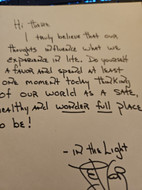 Hi there
I truly believe that our
thoughts influence what we
experience in life. Do yourself
a favor and spend at least
one moment today thinking
of our world as a safe,
healthy and wonder full place
to be!
- in the Light